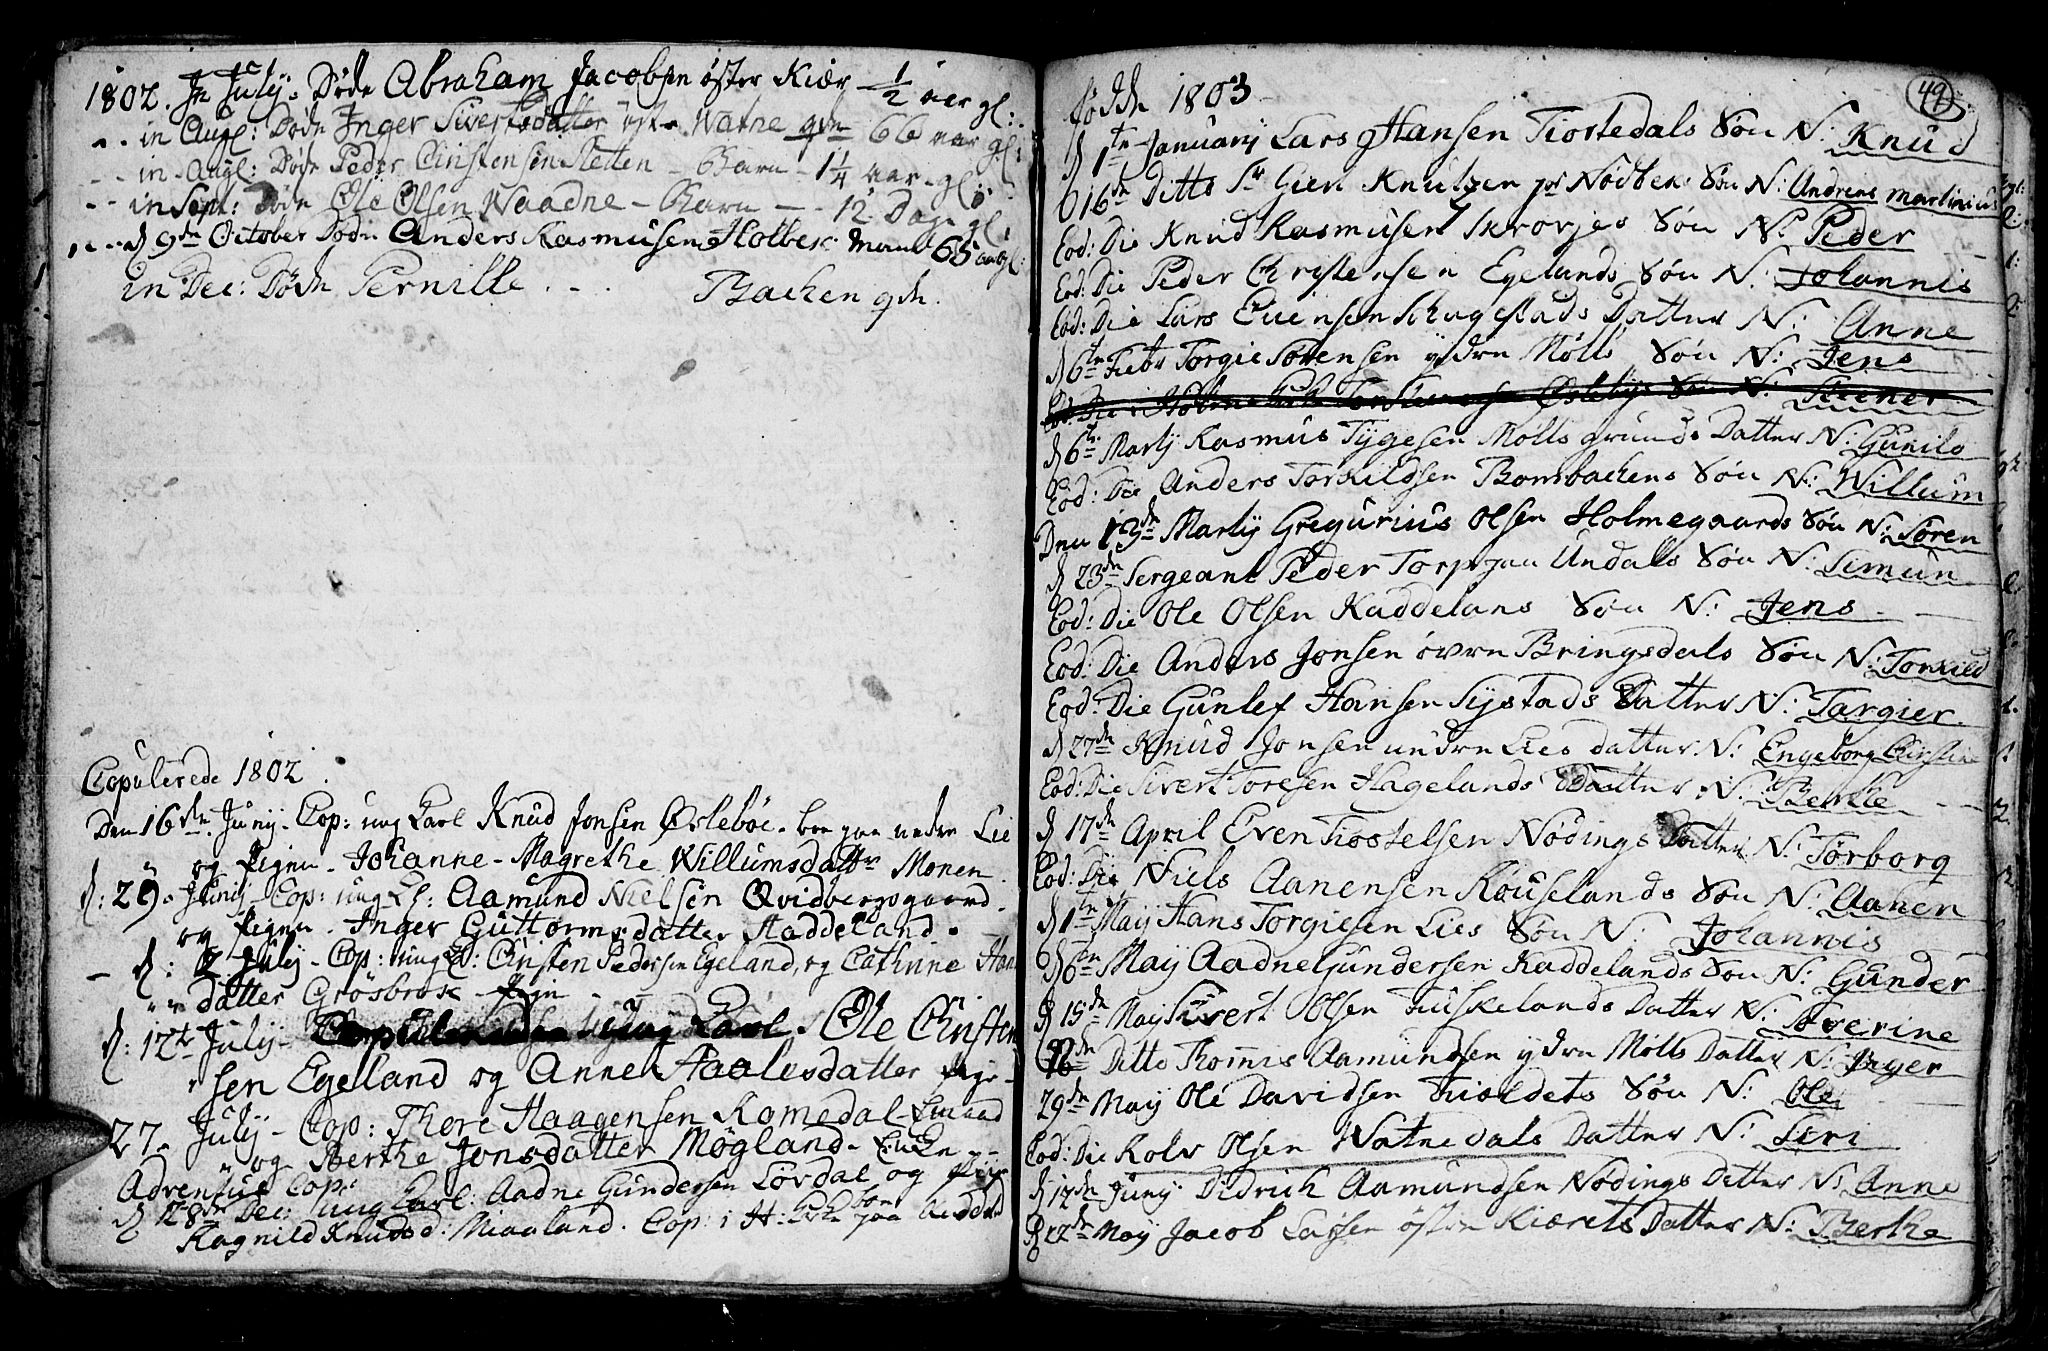 1802. In Julij. Døde Abraham Jacobsen øster Kiær ½ aar gl:
in Augl: Døde Inger Sivertsdatter øst Watne gdn 66 aar gl:
in Augl: Døde Peder Christensen Stetten - Barn - 1¼ aar gl:
in Sept: Døde Ole Olsen Waadne - Barn - 12 Dage gl:
d 9de October Døde Anders Rasmusen Holbek mand 65 aar gl:
in Dec: Døde Pernille . - - Backen gdn.
Copulerede 1802.
Den 16de Junij. Cop: ung Karl Knud Jonsen Øslebøe. boe paa nedre Lie
og Pigen. Johanne-Magrethe Willumsdattr Monen.
d: 29. Junij - Cop: ung K: Aamund Nielsen Qvidbergsgaard.
og Pigen. Inger Guttormsdatter Haddeland.
d: 2 Julij - Cop: ung K: Christen Pedersen Egeland, og Cathrine
datter Grösbrok Pige
d: 12te Julij - Ole Christen
sen Egeland og Anne Aaalesdatter Pige
27. Julij - Cop: Thore Haagensen Romedal
og Berthe Jonsdatter Møgland - Enken
Adventus Cop:
d 28de Dec: ung Karl: Aadne Gundersen Lördal og Pige
Ragnild Knudsd: Miaaland. Cop: i H: Kirke paa
49
fødde 1803
d 1te Januarij Lars Hansen Tiostedals Søn N: Knud
d 16de Ditto Sr Gien Knutzen paa Nodbek Søn N: Andreas Martinius
Eod: Die Knud Rasmusen Skrovjes Søn N: Peder
Eod: Die Peder Christensen Egelands Søn N: Johannis
Eod: Die Lars Evensen Schagestads Datter N: Anne
d 6te Febr Torgie Sørensen ydre Mølls Søn N: Jens
Eod: Die Holme Kirke Øslebøes Søn N:
d 6te Martij Rasmus Tygesen Mølls grunds Datter N: Gunild
Eod: Die Anders Torkildsen Bombackens Søn N: Willum
Den 13de Martij Gregurius Olsen Holmegaards Søn N: Søren
d 23de Sergeant Peder Torp paa Undals Søn N: Simun
Eod: Die Ole Olsen Kaddelans Søn N: Jens
Eod: Die Anders Jonsen övre Bringsdals Søn N: Torkild
Eod: Die Gunlef Hansen Systads Datter N: Targier
d 27de Knud Jonsen nedre Lies datter N: Engeborg Christine
Eod: Die Sivert Toresen Hagelands Datter N: Berthe
d 17de April Even Tiostelsen Nødings Datter N: Torborg
Eod: Die Niels Aanensen Röuselands Søn N: Aanen
d 1te May Hans Torgiesen Lies Søn N: Johannis
d 6te May Aadne Gundersen Kaddelands Søn N: Gunder
d 15de May Sivert Olsen Fuskelands Datter N: Severine
16de Ditto Thomis Aamundsen ydre Mølls Datter N: Inger
29de May Ole Davidsen Tioldets Søn N: Ole
Eod: Die Rolv Olsen Watnedals Datter N: Seri
d 12de Junij Didrich Aamundsen Nødings Datter N: Anne
d 22de May Jacob Larsen østre Kiærets Datter N: Berthe